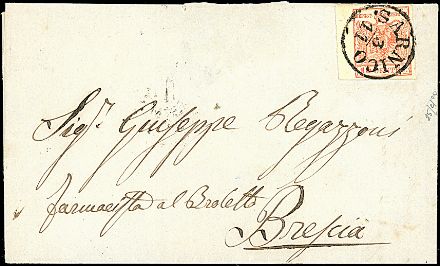 SARNICO
11
3
Sigr. Giuseppe Regazzoni
farmacista al Broletto
Brescia